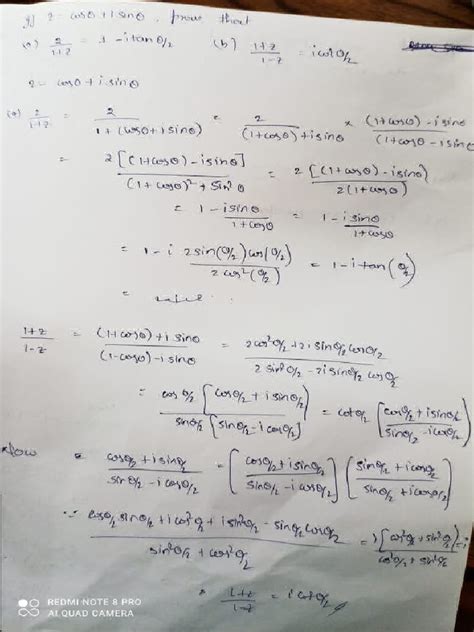 If z = cosθ + i sinθ, prove that
(a) 2/(1+z) = 1 - i tan θ/2 (b) (1+z)/(1-z) = i cot θ/2
z = cosθ + i sinθ
(a) 2/(1+z) = 2/(1+(cosθ+i sinθ)) = 2/((1+cosθ)+i sinθ) × ((1+cosθ)-i sinθ)/((1+cosθ - i sinθ)
= 2[(1+cosθ)-i sinθ]/((1+cosθ)² + sin²θ) = 2[(1+cosθ)-i sinθ)/(2(1+cosθ)
= 1 - i sinθ/(1+cosθ) = 1 - i sinθ/(1+cosθ)
= 1 - i 2 sin(θ/2) cos(θ/2)/(2 cos²(θ/2)) = 1 - i tan(θ/2)
=
(1+z)/(1-z) = ((1+cosθ)+i sinθ)/((1-cosθ)-i sinθ) = (2cos²θ/2 + 2i sinθ/2 cosθ/2)/(2 sin²θ/2 - 2i sinθ/2 cosθ/2)
= cosθ/2 [cosθ/2 + i sinθ/2]/(sinθ/2 [sinθ/2 - i cosθ/2]) = cotθ/2 [(cosθ/2 + i sinθ/2)/(sinθ/2 - i cosθ/2)]
Now = (cosθ/2 + i sinθ/2)/(sinθ/2 - i cosθ/2) = [(cosθ/2 + i sinθ/2)/(sinθ/2 - i cosθ/2)] [(sinθ/2 + i cosθ/2)/(sinθ/2 + i cosθ/2)]
∵ (cosθ/2 sinθ/2 + i cos²θ/2 + i sin²θ/2 - sinθ/2 cosθ/2)/(sin²θ/2 + cos²θ/2) = i[cos²θ/2 + sin²θ/2]/(cos²θ/2 + sin²θ/2) = i
∴ (1+z)/(1-z) = i cot θ/2
REDMI NOTE 8 PRO
AI QUAD CAMERA